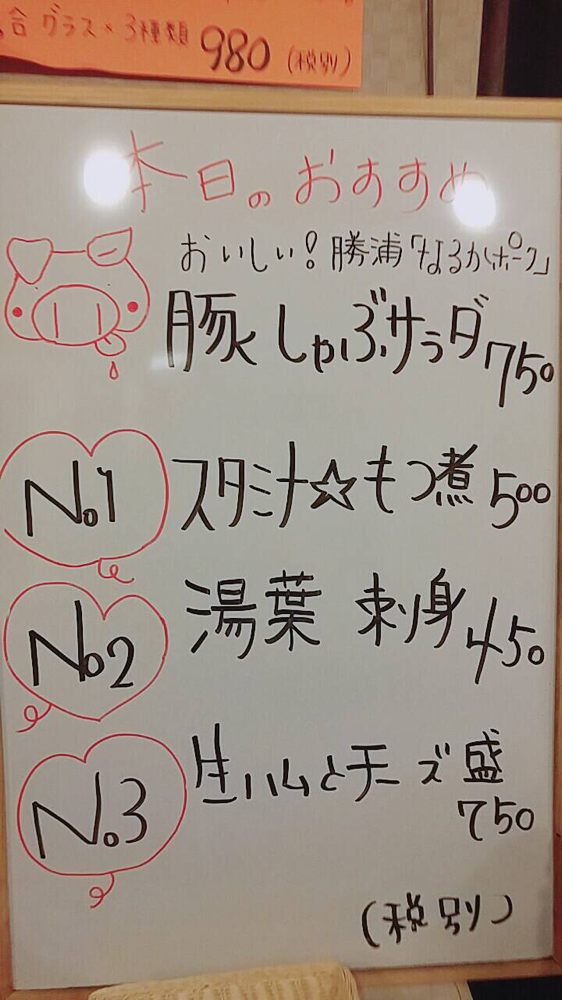 合 グラス×3種類 980 (税別)
本日のおすすめ
おいしい!勝浦「なるかポーク」
豚しゃぶサラダ 750
No.1 スタミナ☆もつ煮 500
No.2 湯葉 刺身 450
No.3 生ハムとチーズ盛
750
(税別)